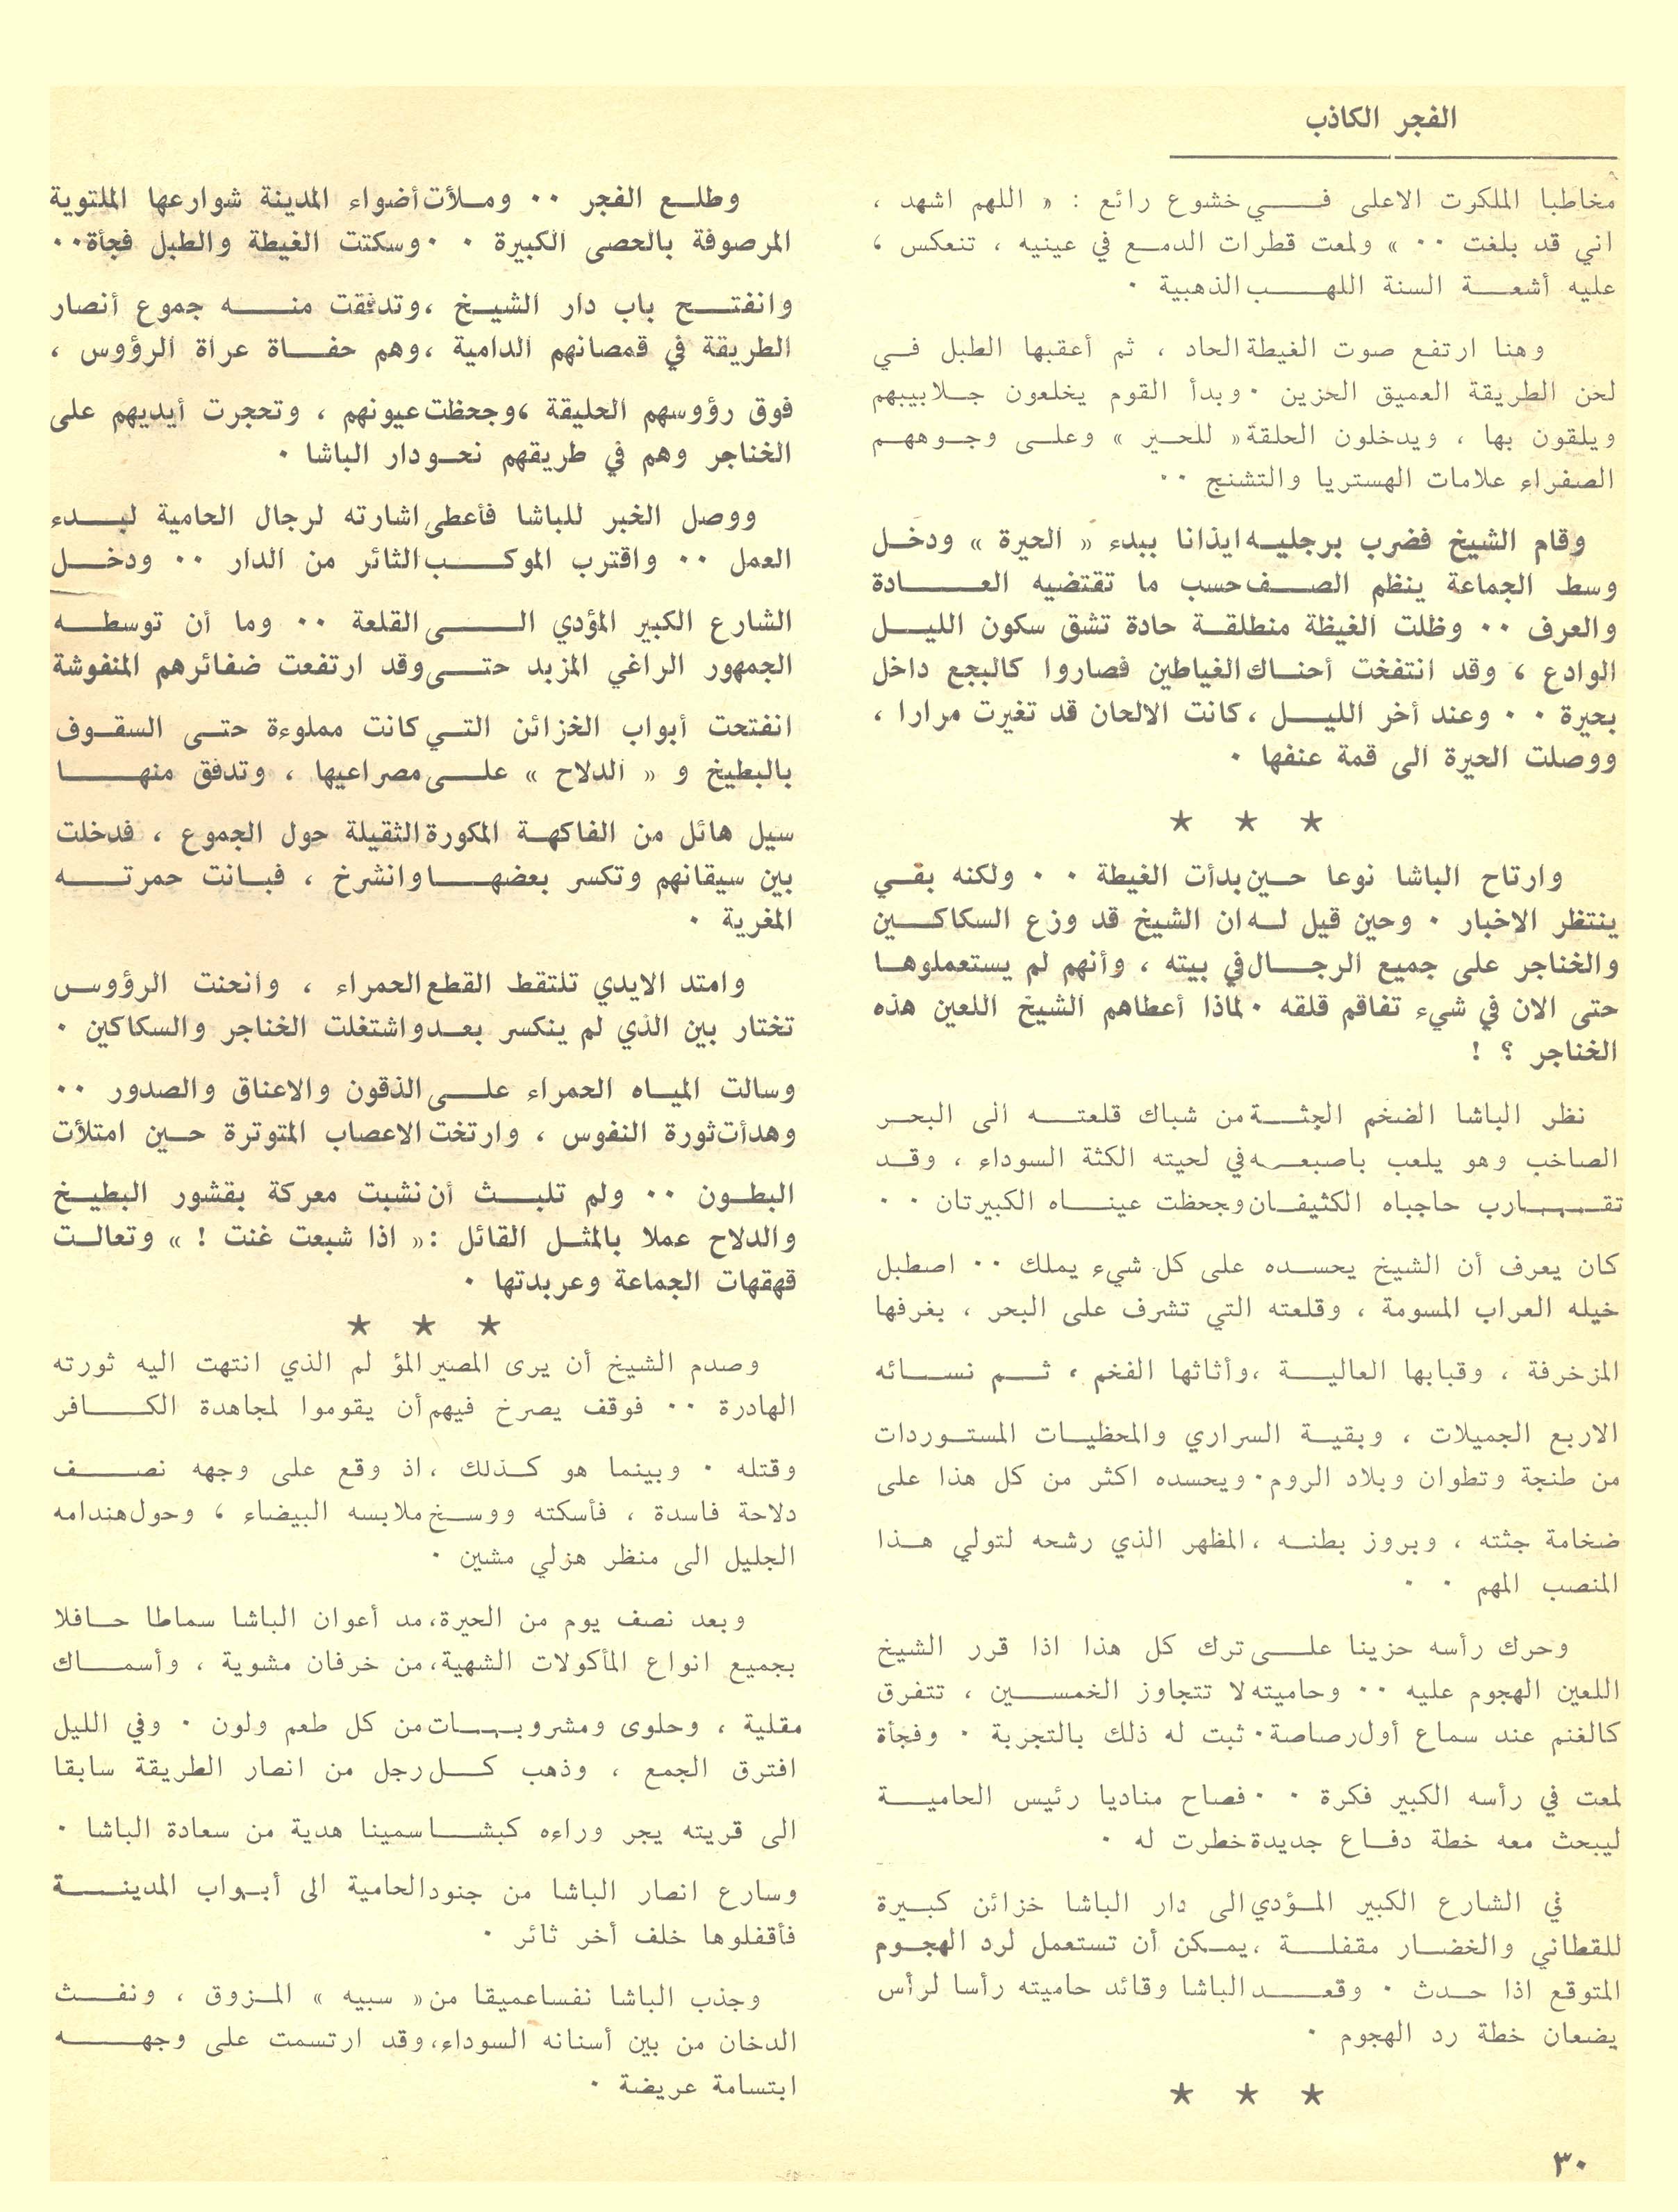 الفجر الكاذب
مخاطبا الملكوت الاعلى في خشوع رائع : « اللهم اشهد ،
اني قد بلغت ٠٠ » ولمعت قطرات الدمع في عينيه ، تنعكس ،
عليه أشعة السنة اللهب الذهبية ٠
وهنا ارتفع صوت الغيطة الحاد ، ثم أعقبها الطبل في
لحن الطريقة العميق الحزين ٠ وبدأ القوم يخلعون جلابيبهم
ويلقون بها ، ويدخلون الحلقة « للحير » وعلى وجوههم
الصفراء علامات الهستريا والتشنج ٠٠
وقام الشيخ فضرب برجليه ايذانا ببدء « الحيرة » ودخل
وسط الجماعة ينظم الصف حسب ما تقتضيه العادة
والعرف ٠٠ وظلت الغيظة منطلقة حادة تشق سكون الليل
الوادع ، وقد انتفخت أحناك الغياطين فصاروا كالبجع داخل
بحيرة ٠٠ وعند أخر الليل ، كانت الالحان قد تغيرت مرارا ،
ووصلت الحيرة الى قمة عنفها ٠
★ ★ ★
وارتاح الباشا نوعا حين بدأت الغيطة ٠٠ ولكنه بقي
ينتظر الاخبار ٠ وحين قيل له ان الشيخ قد وزع السكاكين
والخناجر على جميع الرجال في بيته ، وأنهم لم يستعملوها
حتى الان في شيء تفاقم قلقه ٠ لماذا أعطاهم الشيخ اللعين هذه
الخناجر ؟ !
نظر الباشا الضخم الجثة من شباك قلعته الى البحر
الصاخب وهو يلعب باصبعه في لحيته الكثة السوداء ، وقد
تقارب حاجباه الكثيفان وجحظت عيناه الكبيرتان ٠٠
كان يعرف أن الشيخ يحسده على كل شيء يملك ٠٠ اصطبل
خيله العراب المسومة ، وقلعته التي تشرف على البحر ، بغرفها
المزخرفة ، وقبابها العالية ، وأثاثها الفخم ، ثم نسائه
الاربع الجميلات ، وبقية السراري والمحظيات المستوردات
من طنجة وتطوان وبلاد الروم ٠ ويحسده اكثر من كل هذا على
ضخامة جثته ، وبروز بطنه ، المظهر الذي رشحه لتولي هذا
المنصب المهم ٠٠
وحرك رأسه حزينا على ترك كل هذا اذا قرر الشيخ
اللعين الهجوم عليه ٠٠ وحاميته لا تتجاوز الخمسين ، تتفرق
كالغنم عند سماع أول رصاصة ٠ ثبت له ذلك بالتجربة ٠ وفجأة
لمعت في رأسه الكبير فكرة ٠٠ فصاح مناديا رئيس الحامية
ليبحث معه خطة دفاع جديدة خطرت له ٠
في الشارع الكبير المؤدي الى دار الباشا خزائن كبيرة
للقطاني والخضار مقفلة ، يمكن أن تستعمل لرد الهجوم
المتوقع اذا حدث ٠ وقعد الباشا وقائد حاميته رأسا لرأس
يضعان خطة رد الهجوم ٠
★ ★ ★
وطلع الفجر ٠٠ وملأت أضواء المدينة شوارعها الملتوية
المرصوفة بالحصى الكبيرة ٠٠ وسكتت الغيطة والطبل فجأة ٠٠
وانفتح باب دار الشيخ ، وتدفقت منه جموع أنصار
الطريقة في قمصانهم الدامية ، وهم حفاة عراة الرؤوس ،
فوق رؤوسهم الحليقة ، وجحظت عيونهم ، وتحجرت أيديهم على
الخناجر وهم في طريقهم نحو دار الباشا ٠
ووصل الخبر للباشا فأعطى اشارته لرجال الحامية لبدء
العمل ٠٠ واقترب الموكب الثائر من الدار ٠٠ ودخل
الشارع الكبير المؤدي الى القلعة ٠٠ وما أن توسطه
الجمهور الراغي المزبد حتى وقد ارتفعت ضفائرهم المنفوشة
انفتحت أبواب الخزائن التي كانت مملوءة حتى السقوف
بالبطيخ و « الدلاح » على مصراعيها ، وتدفق منها
سيل هائل من الفاكهة المكورة الثقيلة حول الجموع ، فدخلت
بين سيقانهم وتكسر بعضها وانشرخ ، فبانت حمرته
المغرية ٠
وامتد الايدي تلتقط القطع الحمراء ، وانحنت الرؤوس
تختار بين الذي لم ينكسر بعد واشتغلت الخناجر والسكاكين ٠
وسالت المياه الحمراء على الذقون والاعناق والصدور ٠٠
وهدأت ثورة النفوس ، وارتخت الاعصاب المتوترة حين امتلأت
البطون ٠٠ ولم تلبث أن نشبت معركة بقشور البطيخ
والدلاح عملا بالمثل القائل : « اذا شبعت غنت ! » وتعالت
قهقهات الجماعة وعربدتها ٠
★ ★ ★
وصدم الشيخ أن يرى المصير المؤ لم الذي انتهت اليه ثورته
الهادرة ٠٠ فوقف يصرخ فيهم أن يقوموا لمجاهدة الكافر
وقتله ٠ وبينما هو كذلك ، اذ وقع على وجهه نصف
دلاحة فاسدة ، فأسكته ووسخ ملابسه البيضاء ، وحول هندامه
الجليل الى منظر هزلي مشين ٠
وبعد نصف يوم من الحيرة ، مد أعوان الباشا سماطا حافلا
بجميع انواع المأكولات الشهية ، من خرفان مشوية ، وأسماك
مقلية ، وحلوى ومشروبات من كل طعم ولون ٠ وفي الليل
افترق الجمع ، وذهب كل رجل من انصار الطريقة سابقا
الى قريته يجر وراءه كبشا سمينا هدية من سعادة الباشا ٠
وسارع انصار الباشا من جنود الحامية الى أبواب المدينة
فأقفلوها خلف أخر ثائر ٠
وجذب الباشا نفسا عميقا من « سبيه » المزوق ، ونفث
الدخان من بين أسنانه السوداء ، وقد ارتسمت على وجهه
ابتسامة عريضة ٠
٣٠